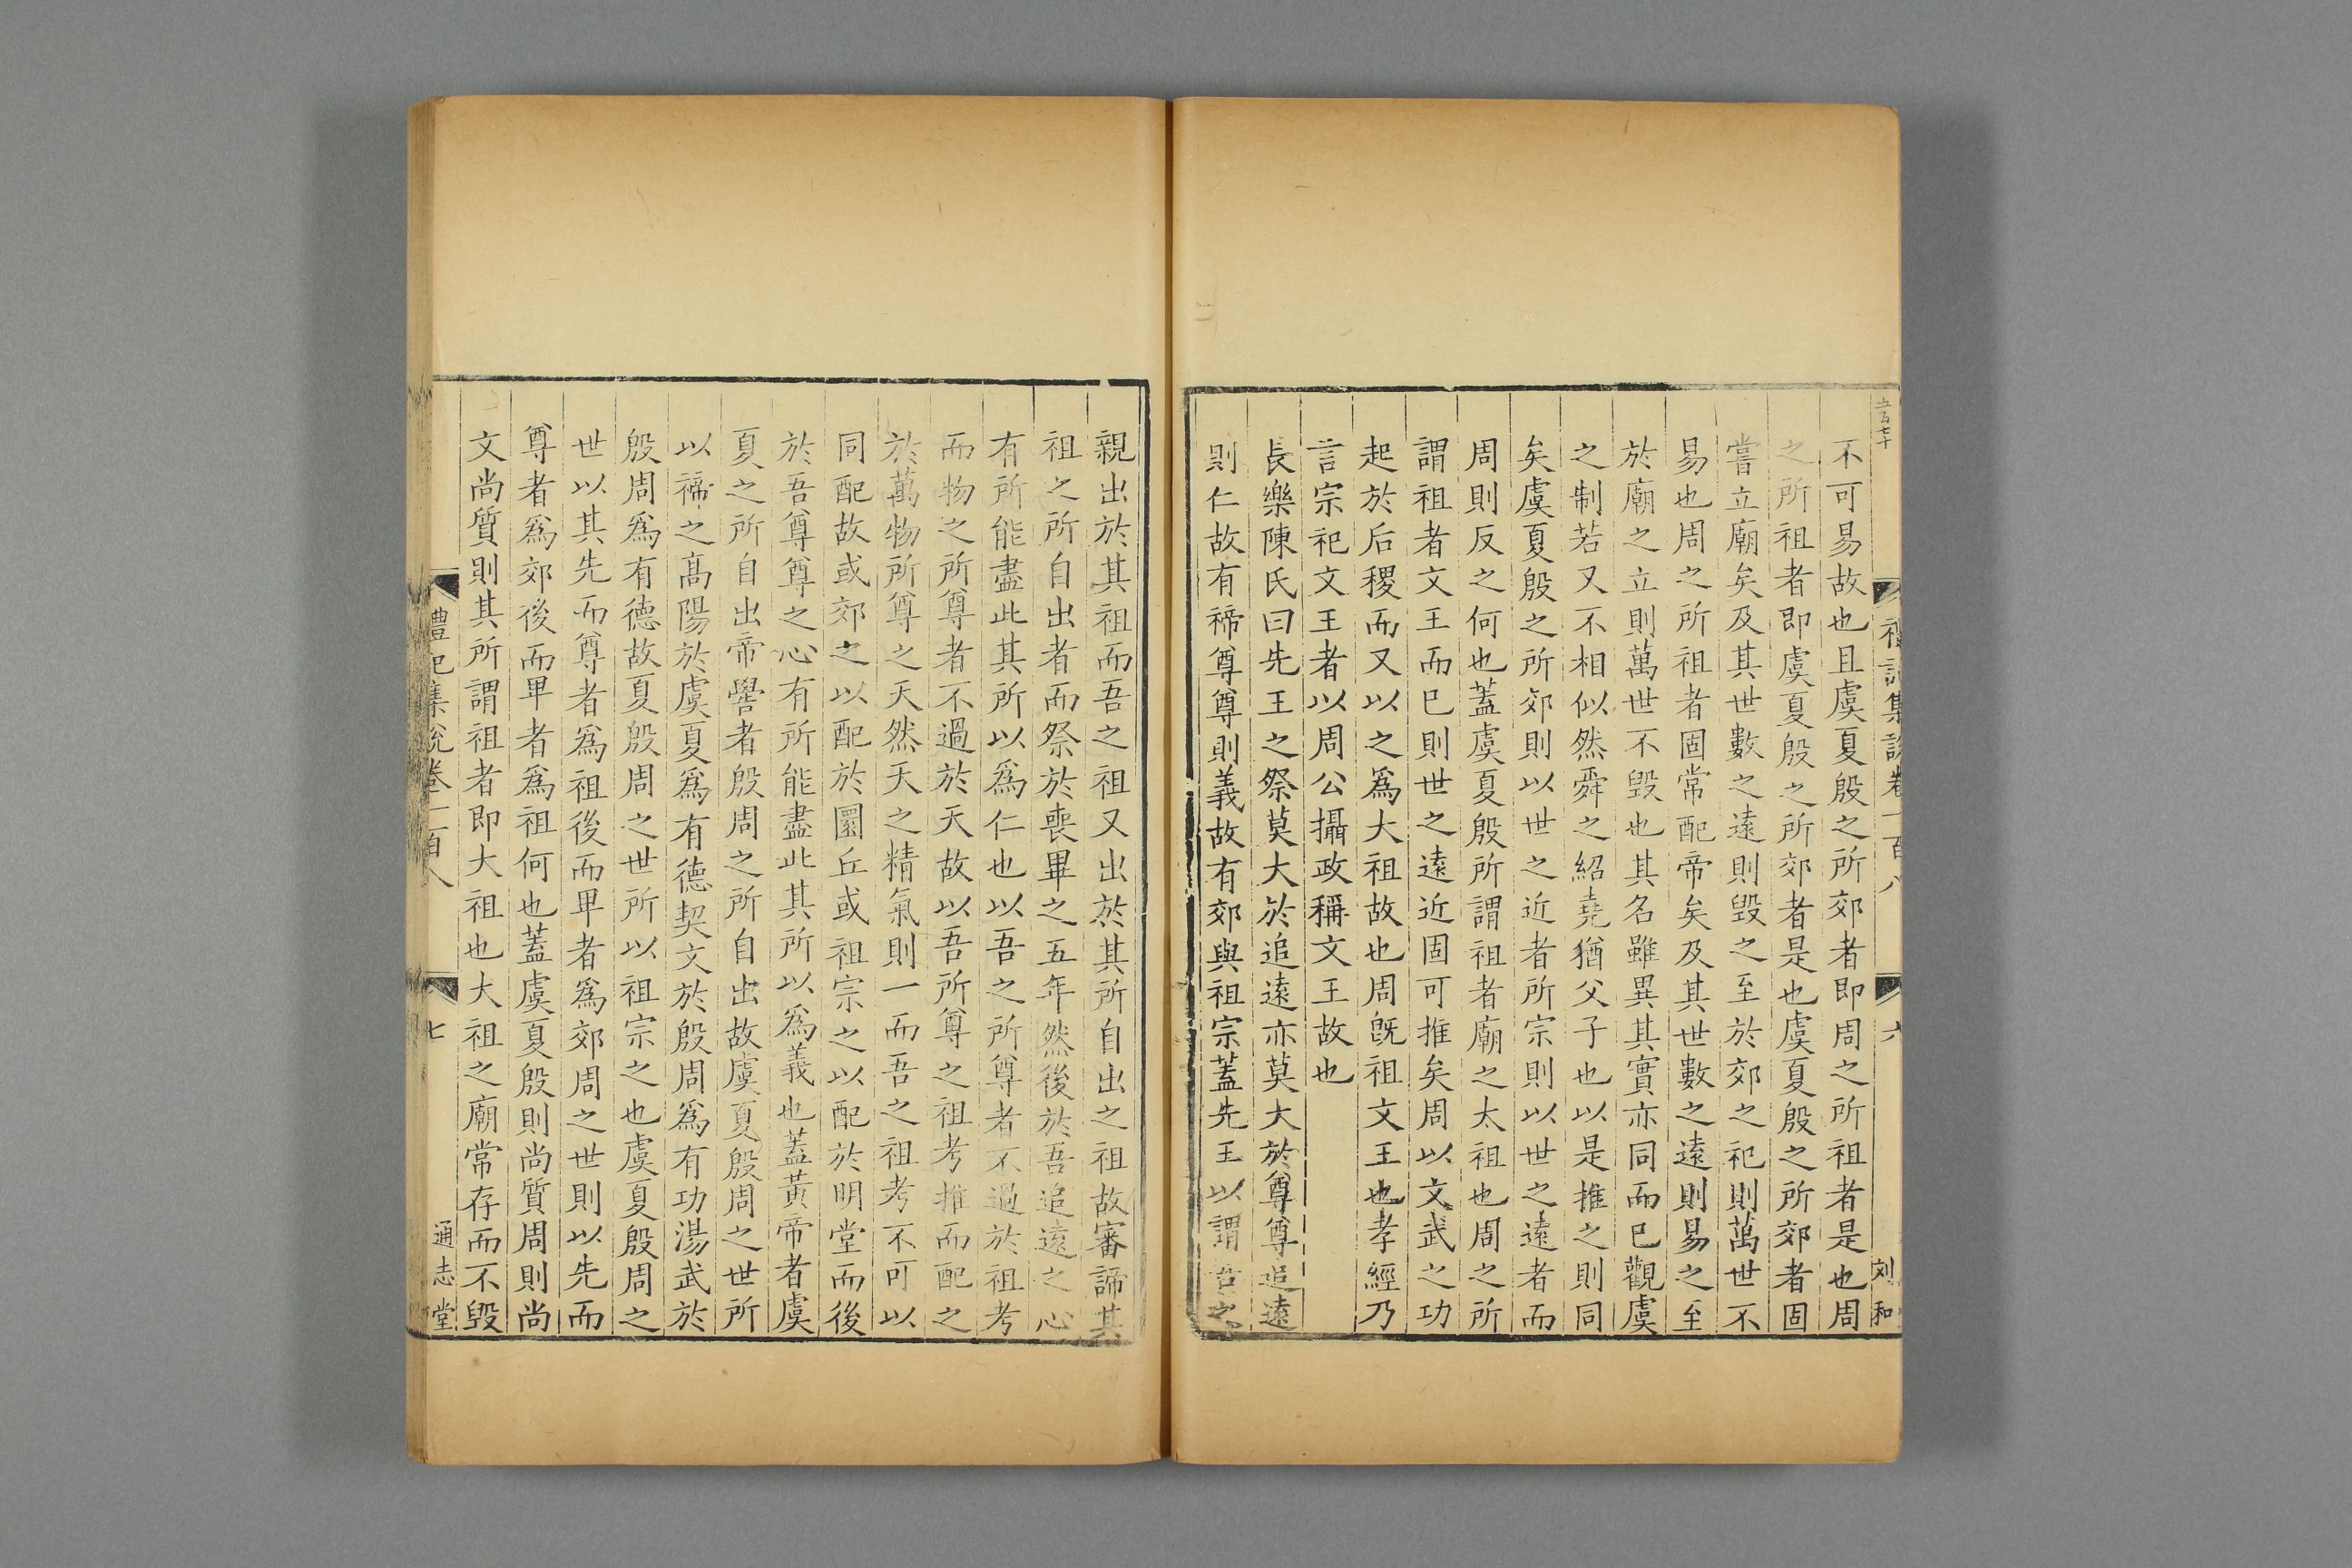 五百七十
禮記集說卷一百八
六
刘和
不可易故也且虞夏殷之所郊者即周之所祖者是也周
之所祖者即虞夏殷之所郊者是也虞夏殷之所郊者固
嘗立廟矣及其世數之遠則毀之至於郊之祀則萬世不
易也周之所祖者固常配帝矣及其世數之遠則易之至
於廟之立則萬世不毀也其名雖異其實亦同而已觀虞
之制若又不相似然舜之紹堯猶父子也以是推之則同
矣虞夏殷之所郊則以世之近者所宗則以世之遠者而
周則反之何也蓋虞夏殷所謂祖者廟之太祖也周之所
謂祖者文王而已則世之遠近固可推矣周以文武之功
起於后稷而又以之爲大祖故也周旣祖文王也孝經乃
言宗祀文王者以周公攝政稱文王故也
長樂陳氏曰先王之祭莫大於追遠亦莫大於尊尊追遠
則仁故有禘尊尊則義故有郊與祖宗蓋先王以謂吾之
親出於其祖而吾之祖又出於其所自出之祖故審諦其
祖之所自出者而祭於喪畢之五年然後於吾追遠之心
有所能盡此其所以爲仁也以吾之所尊者不過於祖考
而物之所尊者不過於天故以吾所尊之祖考推而配之
於萬物所尊之天然天之精氣則一而吾之祖考不可以
同配故或郊之以配於圜丘或祖宗之以配於明堂而後
於吾尊尊之心有所能盡此其所以爲義也蓋黃帝者虞
夏之所自出帝嚳者殷周之所自出故虞夏殷周之世所
以禘之高陽於虞夏爲有德契文於殷周爲有功湯武於
殷周爲有德故夏殷周之世所以祖宗之也虞夏殷周之
世以其先而尊者爲祖後而畢者爲郊周之世則以先而
尊者爲郊後而畢者爲祖何也蓋虞夏殷則尚質周則尚
文尚質則其所謂祖者即大祖也大祖之廟常存而不毀
禮記集說卷一百八
七
通志堂